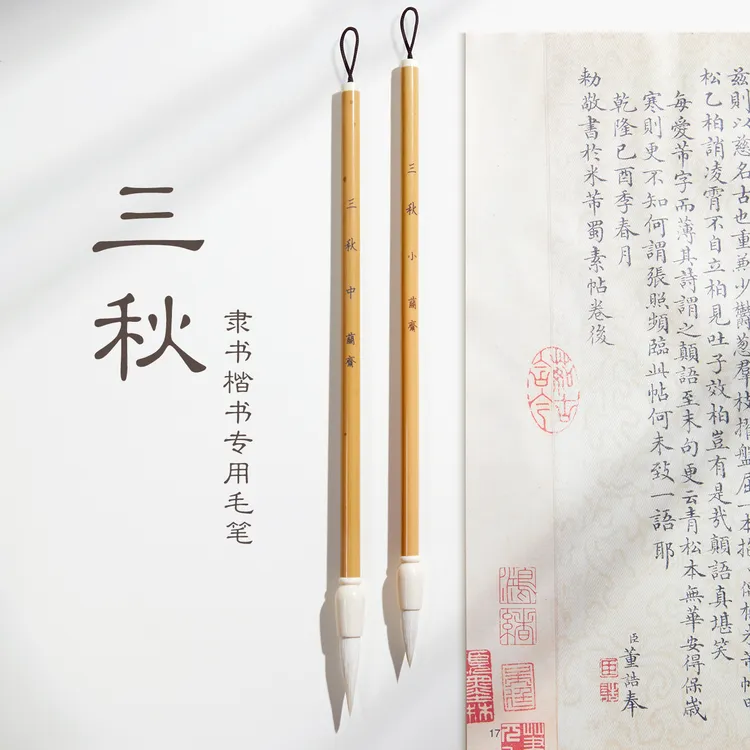 三秋
隶书楷书专用毛笔
三秋 中 齋
三秋 小 齋
茲則以慈名古也重兼少鬱葱羣枝撐盤屈一本抱
松乙柏誚凌霄不自立柏見吐子效柏豈有是哉顛語真堪笑
每愛芾字而薄其詩謂之顛語至末句更云青松本無華安得保歲
寒則更不知何謂張照頻臨此帖何未致一語耶
乾隆己酉季春月
臣董誥奉
勑敬書於米芾蜀素帖卷後
17